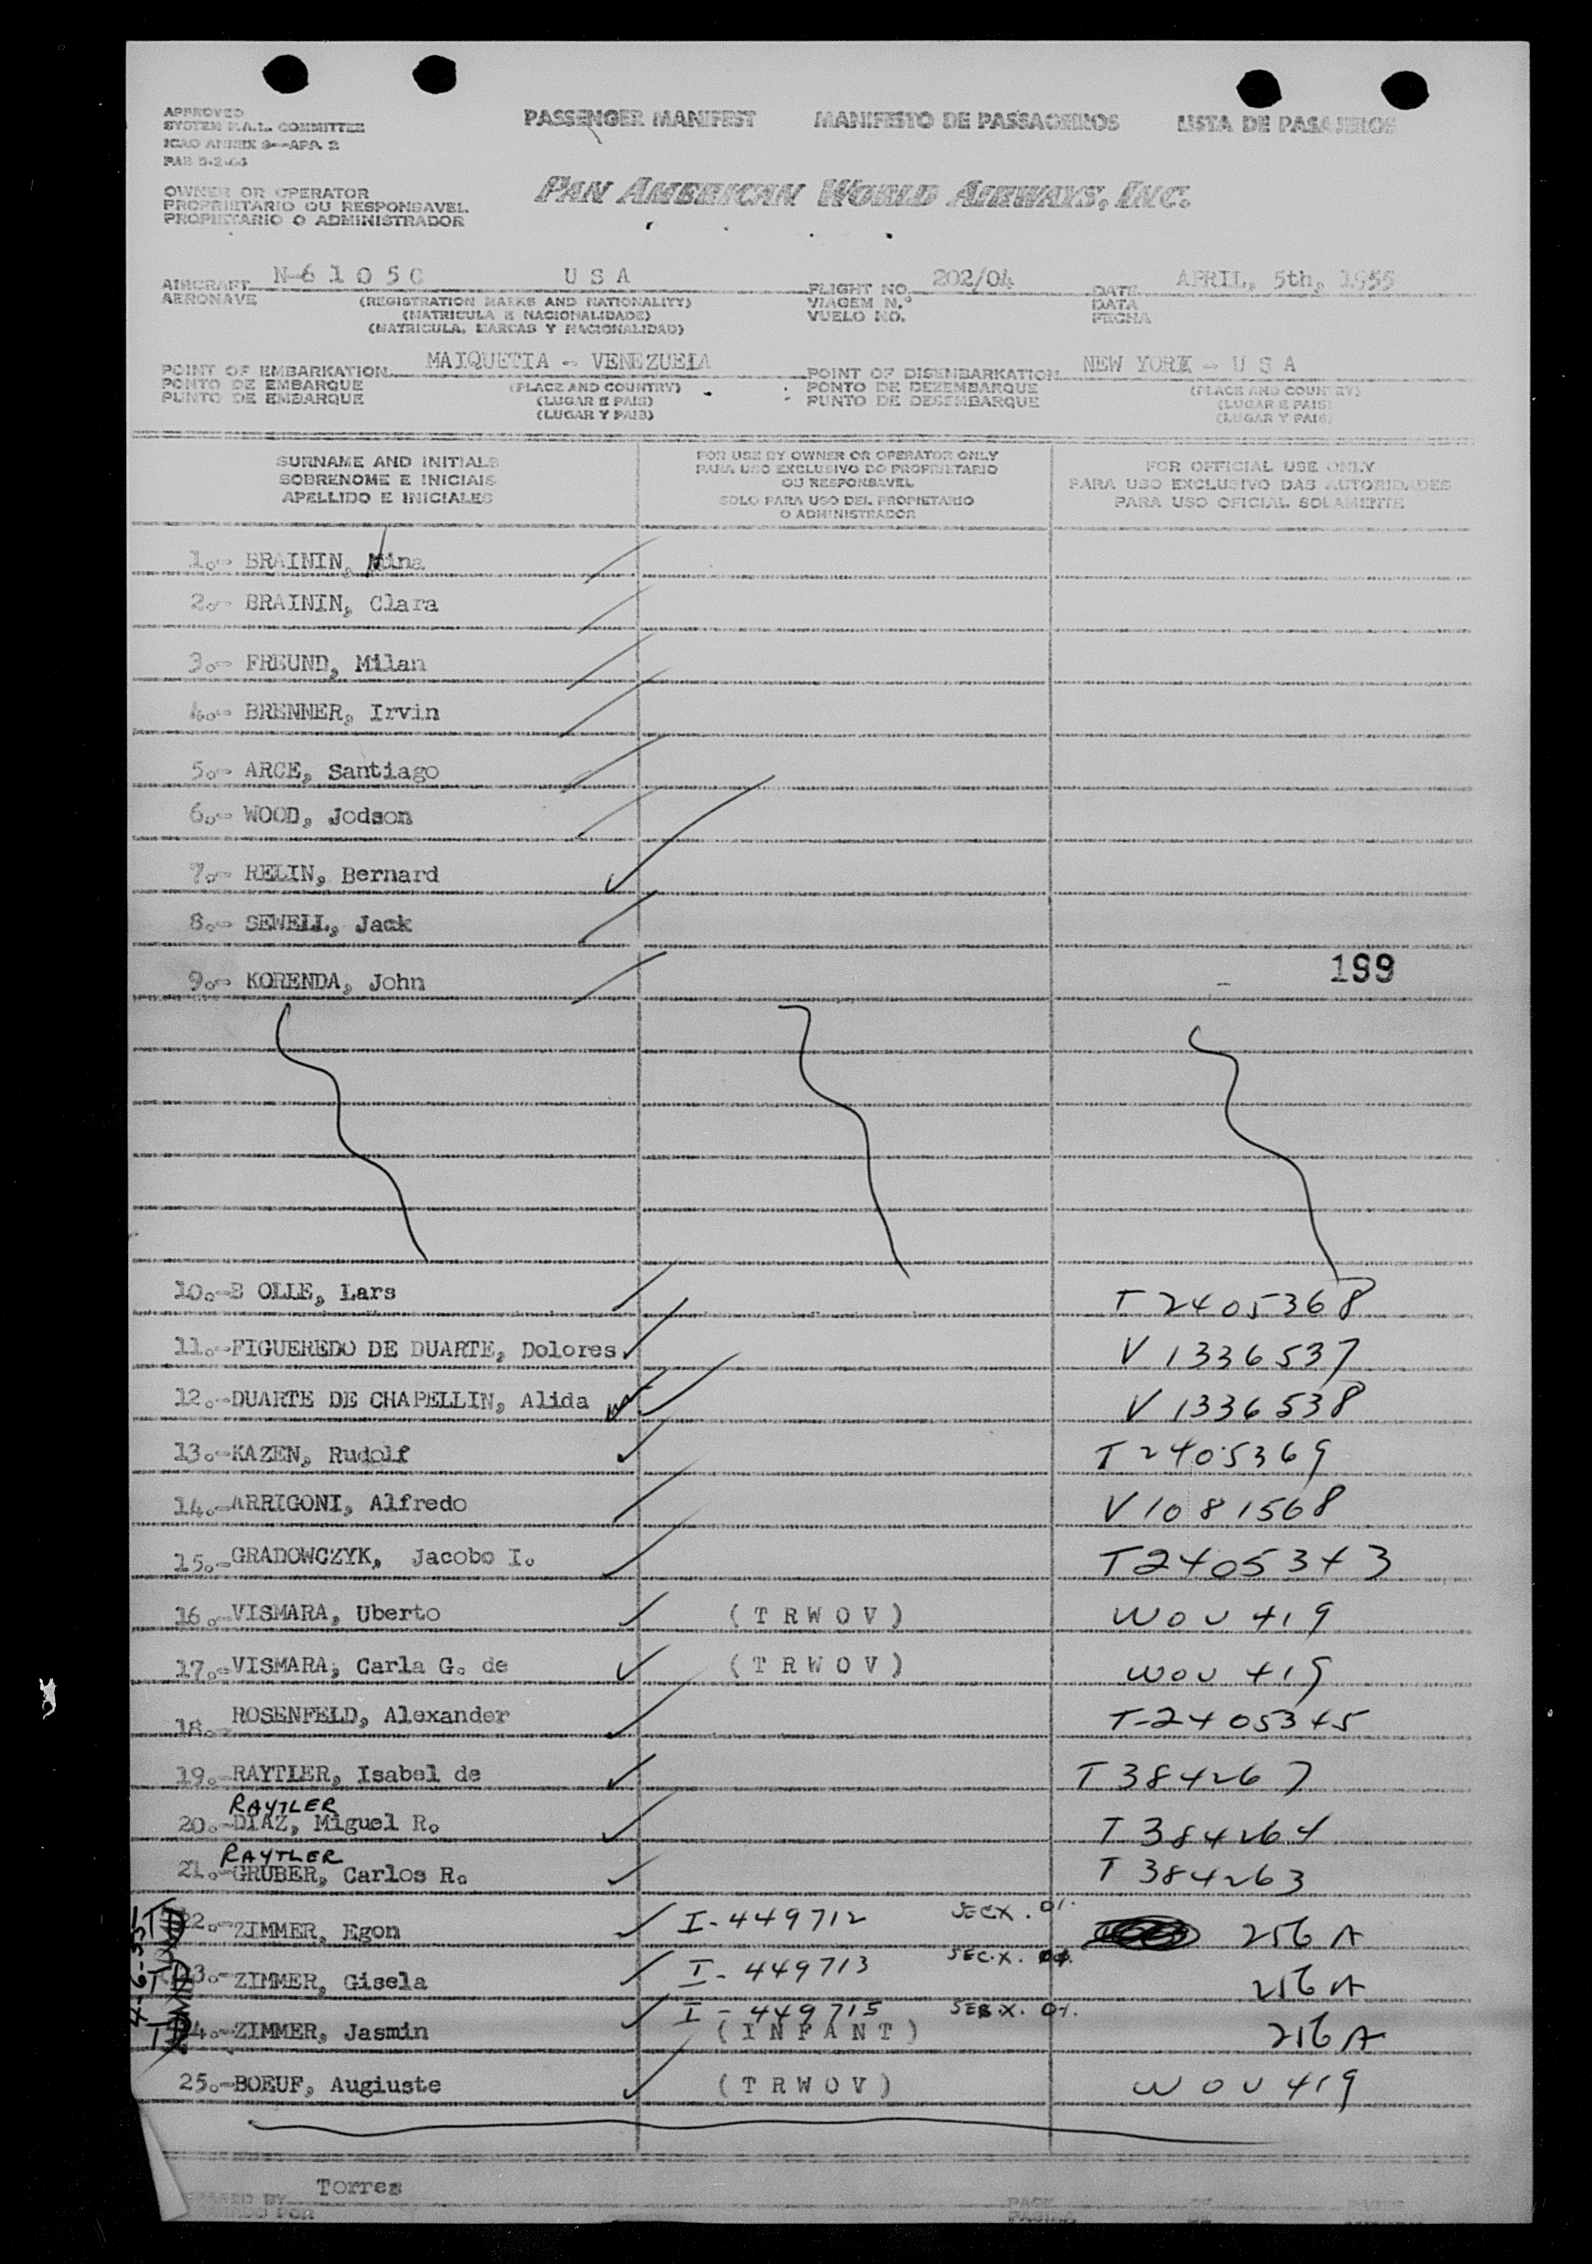 APPROVED
SYSTEM F.A.L. COMMITTEE
ICAO ANNEX 9—APP. 2
PASSENGER MANIFEST MANIFESTO DE PASSAGEIROS LISTA DE PASAJEROS
OWNER OR OPERATOR
PROPRIETARIO OU RESPONSAVEL
PROPIETARIO O ADMINISTRADOR
PAN AMERICAN WORLD AIRWAYS, INC.
AIRCRAFT N-6 1 0 5 C U S A FLIGHT NO. 202/04 DATE APRIL, 5th, 1955
AERONAVE (REGISTRATION MARKS AND NATIONALITY) VIAGEM N.º DATA
(MATRICULA E NACIONALIDADE) VUELO NO. FECHA
(MATRICULA, MARCAS Y NACIONALIDAD)
POINT OF EMBARKATION MAIQUETIA - VENEZUELA POINT OF DISEMBARKATION NEW YORK - U S A
PONTO DE EMBARQUE (PLACE AND COUNTRY) PONTO DE DEZEMBARQUE (PLACE AND COUNTRY)
PUNTO DE EMBARQUE (LUGAR E PAIS) PUNTO DE DESEMBARQUE (LUGAR E PAIS)
(LUGAR Y PAIS) (LUGAR Y PAIS)
SURNAME AND INITIALS
SOBRENOME E INICIAIS
APELLIDO E INICIALES
FOR USE BY OWNER OR OPERATOR ONLY
PARA USO EXCLUSIVO DO PROPRIETARIO
OU RESPONSAVEL
SOLO PARA USO DEL PROPIETARIO
O ADMINISTRADOR
FOR OFFICIAL USE ONLY
PARA USO EXCLUSIVO DAS AUTORIDADES
PARA USO OFICIAL SOLAMENTE
1.- BRAININ, Nina
2.- BRAININ, Clara
3.- FREUND, Milan
4.- BRENNER, Irvin
5.- ARCE, Santiago
6.- WOOD, Jodson
7.- RELIN, Bernard
8.- SEWELL, Jack
9.- KORENDA, John 199
10.- B OLLE, Lars T 2405368
11.-FIGUEREDO DE DUARTE, Dolores V 1336537
12.-DUARTE DE CHAPELLIN, Alida V 1336538
13.-KAZEN, Rudolf T 2405369
14.-ARRIGONI, Alfredo V 1081568
15.-GRADOWCZYK, Jacobo I. T2405343
16.-VISMARA, Uberto ( T R W O V ) WOV 419
17.-VISMARA, Carla G. de ( T R W O V ) WOV 419
18.- ROSENFELD, Alexander T-2405345
19.-RAYTLER, Isabel de T 384267
RAYTLER
20.-DIAZ, Miguel R. T 384264
RAYTLER
21.-GRUBER, Carlos R. T 384263
22.-ZIMMER, Egon I-449712 SEC X. 01. 256 A
23.-ZIMMER, Gisela I-449713 SEC.X. 256 A
24.-ZIMMER, Jasmin I-449715 SEC X. 01. 256 A
( I N F A N T )
25.-BOEUF, Augiuste ( T R W O V ) WOV 419
Torres
PAGE